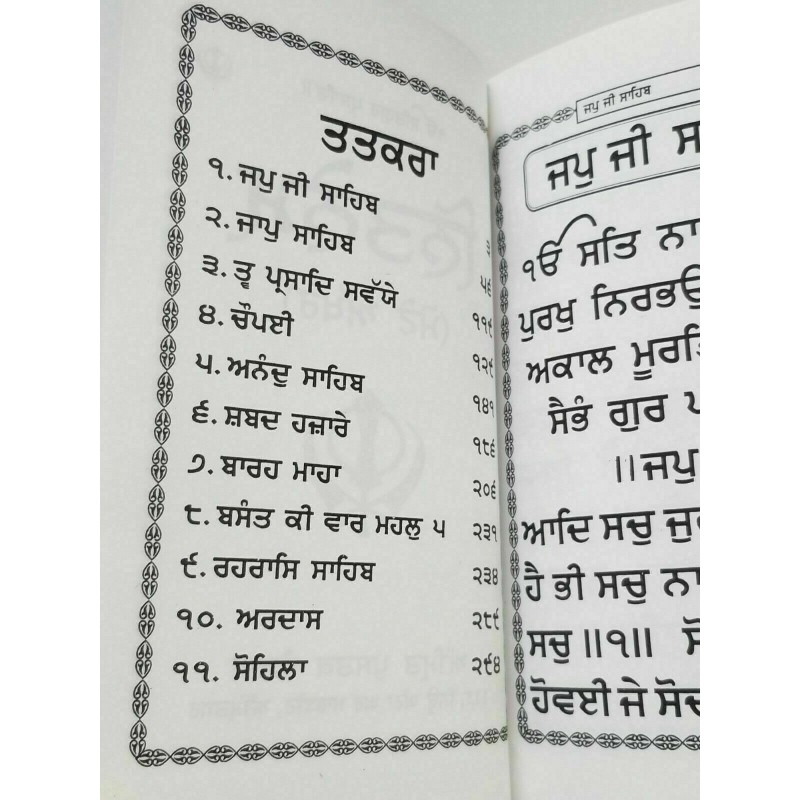 ਤਤਕਰਾ
੧. ਜਪੁ ਜੀ ਸਾਹਿਬ ੩
੨. ਜਾਪੁ ਸਾਹਿਬ ੫੬
੩. ਤ੍ਵ ਪ੍ਰਸਾਦਿ ਸਵੱਯੇ ੧੧੯
੪. ਚੌਪਈ ੧੨੯
੫. ਅਨੰਦੁ ਸਾਹਿਬ ੧੪੧
੬. ਸ਼ਬਦ ਹਜ਼ਾਰੇ ੧੮੬
੭. ਬਾਰਹ ਮਾਹਾ ੨੦੬
੮. ਬਸੰਤ ਕੀ ਵਾਰ ਮਹਲੁ ੫ ੨੩੧
੯. ਰਹਰਾਸਿ ਸਾਹਿਬ ੨੩੪
੧੦. ਅਰਦਾਸ ੨੮੯
੧੧. ਸੋਹਿਲਾ ੨੯੪
ਜਪੁ ਜੀ ਸਾਹਿਬ
ਜਪੁ ਜੀ ਸ
ੴ ਸਤਿ ਨਾ
ਪੁਰਖੁ ਨਿਰਭਉ
ਅਕਾਲ ਮੂਰਤਿ
ਸੈਭੰ ਗੁਰ ਪ
॥ਜਪੁ
ਆਦਿ ਸਚੁ ਜੁ
ਹੈ ਭੀ ਸਚੁ ਨਾ
ਸਚੁ ॥੧॥ ਸੋ
ਹੋਵਈ ਜੇ ਸੋਚ